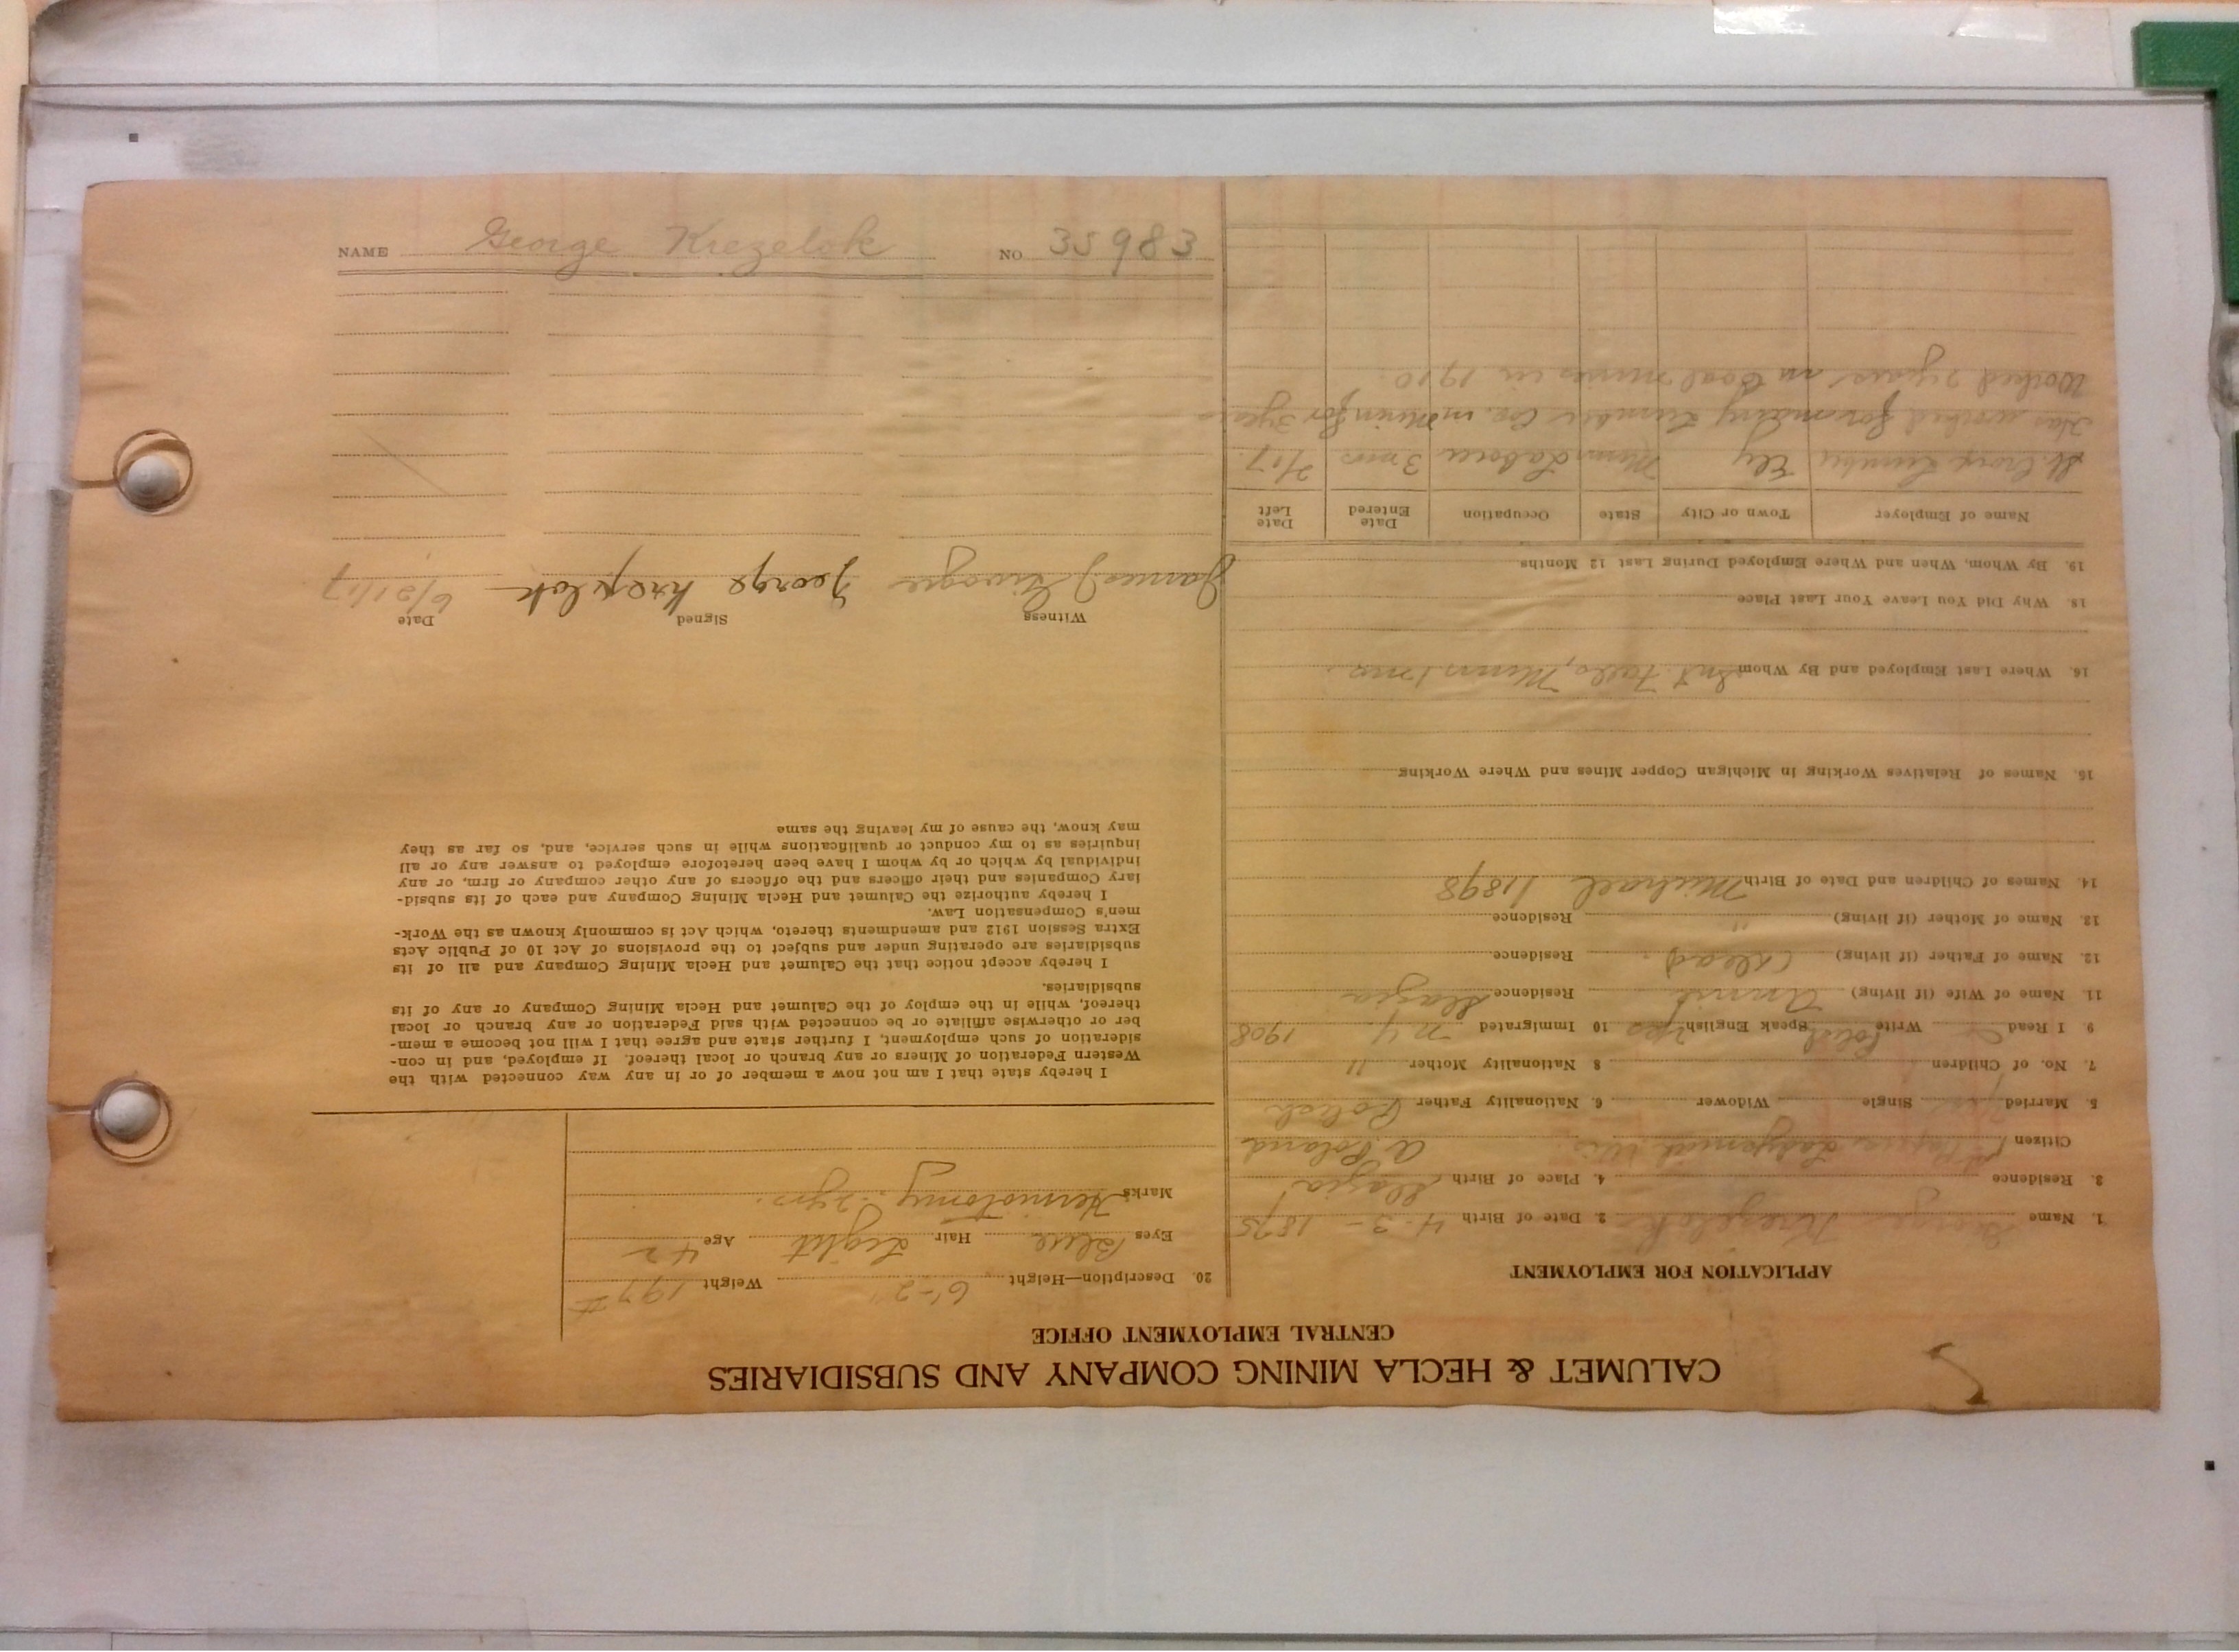 CALUMET & HECLA MINING COMPANY AND SUBSIDIARIES
CENTRAL EMPLOYMENT OFFICE
APPLICATION FOR EMPLOYMENT
1. Name George Krezelok 2. Date of Birth 4-3-1875
3. Residence 4. Place of Birth
Citizen Poland
5. Married Single Widower 6. Nationality Father Polish
7. No. of Children 8 Nationality Mother "
9. I Read Write Polish Speak English yes 10 Immigrated N.Y. 1908
11. Name of Wife (if living) Annie Residence
12. Name of Father (if living) Dead Residence
13. Name of Mother (if living) " Residence
14. Names of Children and Date of Birth Michael 1898
15. Names of Relatives Working in Michigan Copper Mines and Where Working
16. Where Last Employed and By Whom Int. Falls, Minn 1 mo.
18. Why Did You Leave Your Last Place
19. By Whom, When and Where Employed During Last 12 Months
Name of Employer Town or City State Occupation Date Entered Date Left
St. Croix Lumber Ely Minn Laborer 3 mos 2/17
Has worked for Lumber Co. in for 3 years
Worked 2 years in Coal mines in 1910.
20. Description—Height 6'-2" Weight 197#
Eyes Blue Hair Light Age 42
Marks Herniotomy 2 yrs.
I hereby state that I am not now a member of or in any way connected with the
Western Federation of Miners or any branch or local thereof. If employed, and in con-
sideration of such employment, I further state and agree that I will not become a mem-
ber or otherwise affiliate or be connected with said Federation or any branch or local
thereof, while in the employ of the Calumet and Hecla Mining Company or any of its
subsidiaries.
I hereby accept notice that the Calumet and Hecla Mining Company and all of its
subsidiaries are operating under and subject to the provisions of Act 10 of Public Acts
Extra Session 1912 and amendments thereto, which Act is commonly known as the Work-
men's Compensation Law.
I hereby authorize the Calumet and Hecla Mining Company and each of its subsid-
iary Companies and their officers and the officers of any other company or firm, or any
individual by which or by whom I have been heretofore employed to answer any or all
inquiries as to my conduct or qualifications while in such service, and, so far as they
may know, the cause of my leaving the same
Witness Signed Date
James J George Krezelok 6/21/17
NAME George Krezelok NO 35983